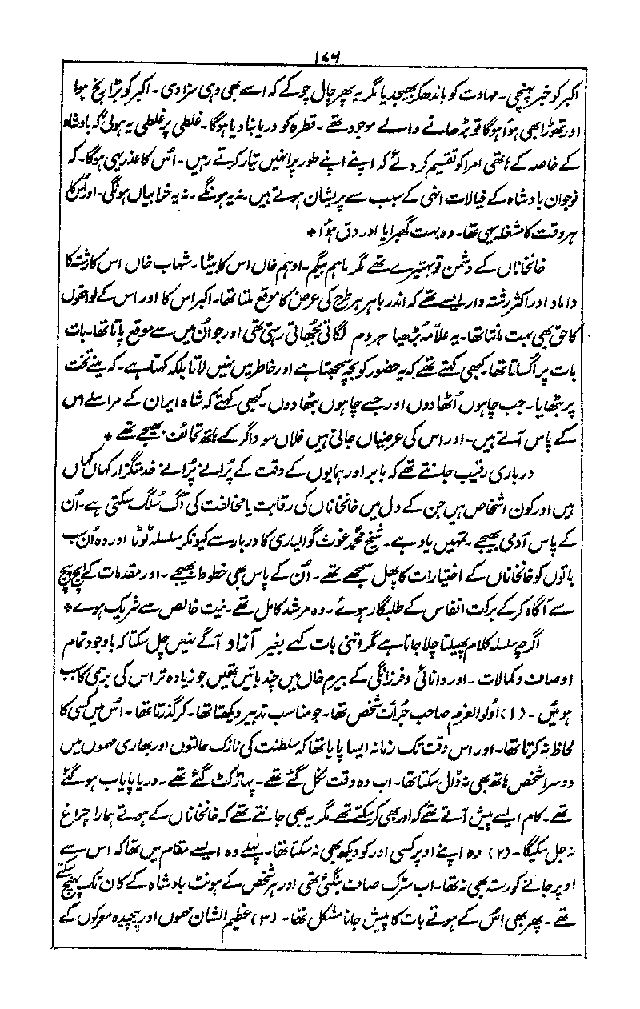 ۱۷۶
اکبر کو خبر پہنچی - مہاوت کو باندھکر بھیجدیا مگر یہ پھر چال چوکے کہ اسے بھی وہی سزا دی - اکبر کو بڑا رنج ہوا
اور تھوڑا بھی ہوا ہوگا تو بڑھانے والے موجود تھے - قطرہ کو دریا بنا دیا ہوگا - غلطی پر غلطی یہ ہوئی کہ بادشاہ
کے خاصہ کے ہاتھی امرا کو تقسیم کر دئے کہ اپنے اپنے طور پر انہیں تیار کرتے رہیں - اس کا عذر یہی ہوگا - کہ
نوجوان بادشاہ کے خیالات انہی کے سبب سے پریشان ہوتے ہیں - نہ یہ ہونگے - نہ یہ خرابیاں ہونگی - اور اس کا
ہر وقت کا مشغلہ یہی تھا - وہ بہت گھبرایا اور دق ہوا *
خانخاناں کے دشمن تو بہتیرے تھے مگر ماہم بیگم - ادہم خاں اس کا بیٹا - شہاب خاں اس کا رشتے کا
داماد اور اکثر رشتہ دار ایسے تھے کہ اندر باہر ہر طرح کی عرض کا موقع ملتا تھا - اکبر اس کا اور اس کے لواحقوں
کا حق بھی بہت مانتا تھا - یہ علامہ بڑھیا ہر دم لگاتی بجھاتی رہتی تھی اور جو ان میں سے موقع پاتا تھا - بات
بات پر اکساتا تھا - کبھی کہتے تھے کہ یہ حضور کو بچہ سمجھتا ہے اور خاطر میں نہیں لاتا بلکہ کہتا ہے - کہ مینے تخت
پر بٹھایا - جب چاہوں اُٹھا دوں اور جسے چاہوں بٹھا دوں - کبھی کہتے کہ شاہ ایران کے مراسلے اس
کے پاس آتے ہیں - اور اس کی عرضیاں جاتی ہیں فلاں سوداگر کے ہاتھ تحائف بھیجے تھے *
درباری رقیب جانتے تھے کہ بابر اور ہمایوں کے وقت کے پُرانے پُرانے خدمتگزار کہاں کہاں
ہیں اور کون اشخاص ہیں جن کے دل میں خانخاناں کی رقابت یا مخالفت کی آگ سُلگ سکتی ہے - اُن
کے پاس آدمی بھیجے - تمہیں یاد ہے - شیخ محمد غوث گوالیاری کا دربار سے کیونکر سلسلہ ٹوٹا اور وہ اُن سب
باتوں کو خانخاناں کے اختیارات کا پھل سمجھے تھے - اُن کے پاس بھی خطوط بھیجے - اور مقدمات کے پیچ پیچ
سے آگاہ کر کے برکت انفاس کے طلبگار ہوئے - وہ مرشد کامل تھے - نیت خالص سے شریک ہوئے *
اگرچہ سلسلہ کلام پھیلتا چلا جاتا ہے مگر اتنی بات کہے بغیر آزاد آگے نہیں چل سکتا کہ باوجود تمام
اوصاف و کمالات - اور دانائی و فرزانگی کے بیرم خاں میں چند باتیں تھیں جو زیادہ تر اس کی برہمی کا سبب
ہوئیں - (۱) اُولوالعزم صاحب جرأت شخص تھا - جو مناسب تدبیر دیکھتا تھا - کر گذرتا تھا - اس میں کسی کا
لحاظ نہ کرتا تھا - اور اس وقت تک زمانہ ایسا پایا تھا کہ سلطنت کی نازک حالتوں اور بھاری مہموں میں
دوسرا شخص ہاتھ بھی نہ ڈال سکتا تھا - اب وہ وقت نکل گئے تھے - پہاڑ کٹ گئے تھے - دریا پایاب ہو گئے
تھے - کام ایسے پیش آتے تھے کہ اور بھی کر سکتے تھے مگر یہ بھی جانتے تھے کہ خانخاناں کے ہوتے ہمارا چراغ
نہ جل سکیگا - (۲) وہ اپنے اوپر کسی اور کو دیکھ بھی نہ سکتا تھا - پہلے وہ ایسے مقام میں تھا کہ اس سے
اوپر جانے کو رستہ بھی نہ تھا - اب سڑک صاف بنگئی تھی اور ہر شخص کے ہونٹ بادشاہ کے کان تک پہنچ سکتے
تھے - پھر بھی اس کے ہوتے بات کا پیش جانا مشکل تھا - (۳) عظیم الشان مہموں اور پیچیدہ معرکوں کے